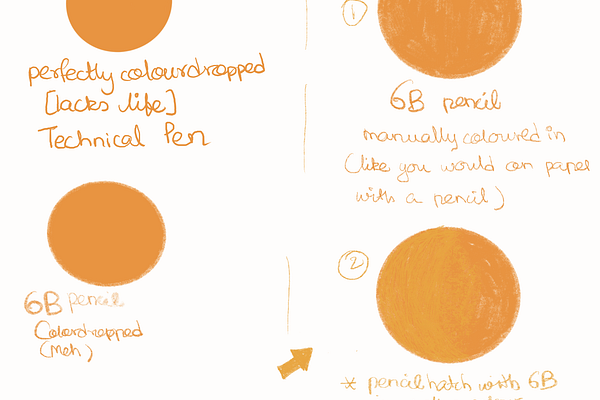 perfectly colourdropped
[lacks life]
Technical Pen
6B pencil
Colordropped
(Meh)
1
6B pencil
manually coloured in
(like you would on paper
with a pencil)
2
* pencil hatch with 6B